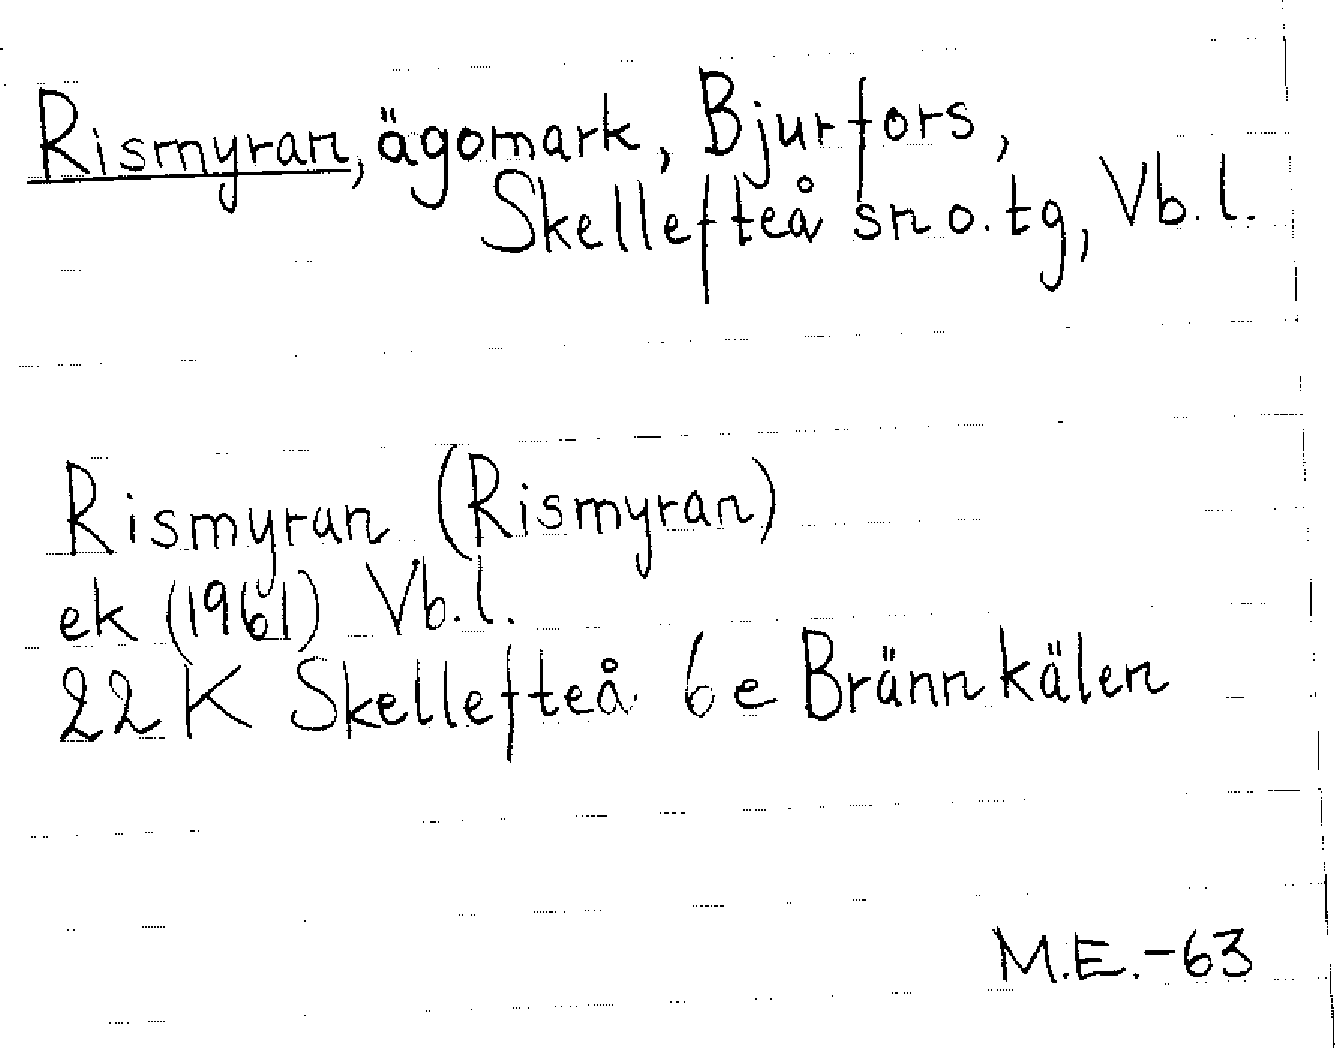 Rismyran, ägomark, Bjurfors,
Skellefteå sn o. tg, Vb. l.
Rismyran (Rismyran)
ek (1961) Vb. l.
22 K Skellefteå 6 e Brännkälen
M.E.-63